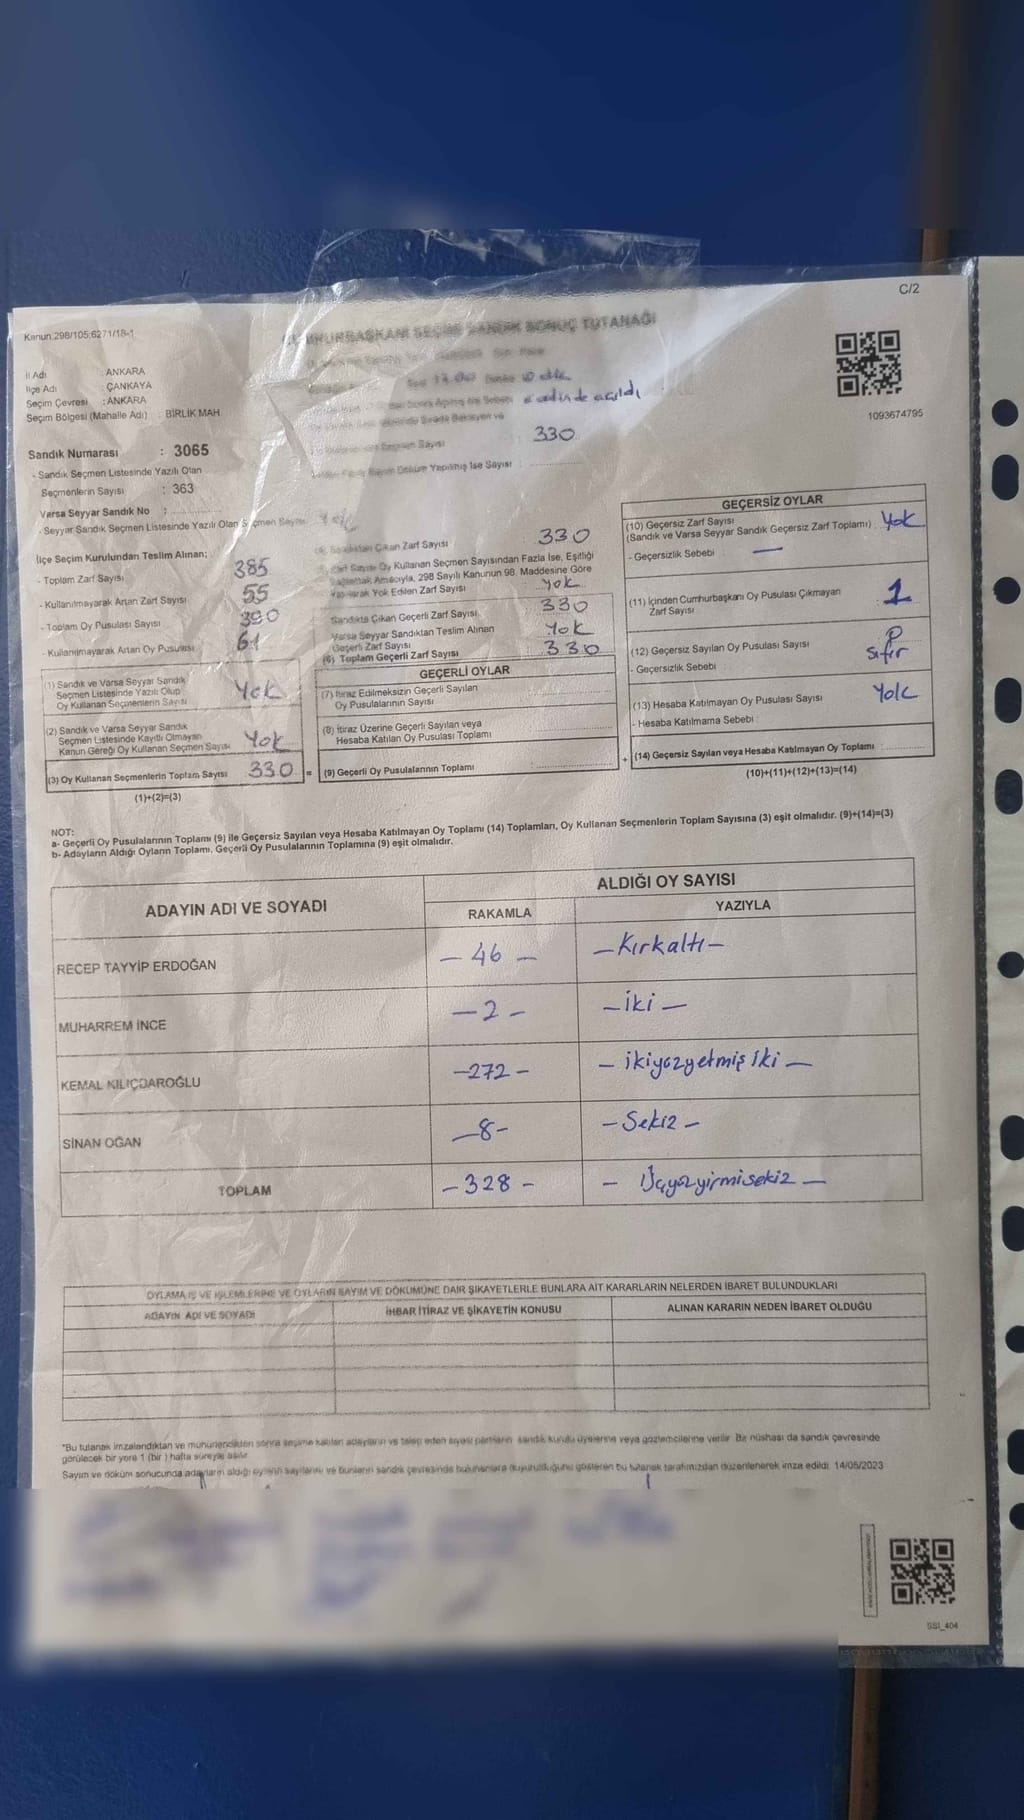 C/2
Kanun:298/105;6271/18-1
CUMHURBAŞKANI SEÇİMİ SANDIK SONUÇ TUTANAĞI
1093674795
İl Adı : ANKARA
İlçe Adı : ÇANKAYA
Seçim Çevresi : ANKARA
Seçim Bölgesi (Mahalle Adı) : BİRLİK MAH
Sandık Numarası : 3065
- Sandık Seçmen Listesinde Yazılı Olan
Seçmenlerin Sayısı : 363
Varsa Seyyar Sandık No :
- Seyyar Sandık Seçmen Listesinde Yazılı Olan Seçmen Sayısı
İlçe Seçim Kurulundan Teslim Alınan;
- Toplam Zarf Sayısı 385
- Kullanılmayarak Artan Zarf Sayısı 55
- Toplam Oy Pusulası Sayısı 390
- Kullanılmayarak Artan Oy Pusulası 61
(1) Sandık ve Varsa Seyyar Sandık
Seçmen Listesinde Yazılı Olup
Oy Kullanan Seçmenlerin Sayısı Yok
(2) Sandık ve Varsa Seyyar Sandık
Seçmen Listesinde Kayıtlı Olmayan
Kanun Gereği Oy Kullanan Seçmen Sayısı Yok
(3) Oy Kullanan Seçmenlerin Toplam Sayısı 330 =
(1)+(2)=(3)
açıldı
330
Döküm Yapılmış İse Sayısı :
Sandıktan Çıkan Zarf Sayısı : 330
Oy Kullanan Seçmen Sayısından Fazla İse, Eşitliği
Sağlamak Amacıyla, 298 Sayılı Kanunun 98. Maddesine Göre
Yakılarak Yok Edilen Zarf Sayısı Yok
Sandıkta Çıkan Geçerli Zarf Sayısı 330
Varsa Seyyar Sandıktan Teslim Alınan
Geçerli Zarf Sayısı Yok
(6) Toplam Geçerli Zarf Sayısı : 330
GEÇERLİ OYLAR
(7) İtiraz Edilmeksizin Geçerli Sayılan
Oy Pusulalarının Sayısı
(8) İtiraz Üzerine Geçerli Sayılan veya
Hesaba Katılan Oy Pusulası Toplamı
(9) Geçerli Oy Pusulalarının Toplamı : +
GEÇERSİZ OYLAR
(10) Geçersiz Zarf Sayısı
(Sandık ve Varsa Seyyar Sandık Geçersiz Zarf Toplamı) Yok
- Geçersizlik Sebebi : —
(11) İçinden Cumhurbaşkanı Oy Pusulası Çıkmayan
Zarf Sayısı 1
(12) Geçersiz Sayılan Oy Pusulası Sayısı
- Geçersizlik Sebebi : sıfır
(13) Hesaba Katılmayan Oy Pusulası Sayısı Yok
- Hesaba Katılmama Sebebi :
(14) Geçersiz Sayılan veya Hesaba Katılmayan Oy Toplamı :
(10)+(11)+(12)+(13)=(14)
NOT:
a- Geçerli Oy Pusulalarının Toplamı (9) ile Geçersiz Sayılan veya Hesaba Katılmayan Oy Toplamı (14) Toplamları, Oy Kullanan Seçmenlerin Toplam Sayısına (3) eşit olmalıdır. (9)+(14)=(3)
b- Adayların Aldığı Oyların Toplamı, Geçerli Oy Pusulalarının Toplamına (9) eşit olmalıdır.
ADAYIN ADI VE SOYADI
ALDIĞI OY SAYISI
RAKAMLA YAZIYLA
RECEP TAYYİP ERDOĞAN — 46 — — Kırkaltı —
MUHARREM İNCE — 2 - — İki —
KEMAL KILIÇDAROĞLU — 272 - — ikiyüzyetmiş iki —
SİNAN OĞAN — 8 - — Sekiz —
TOPLAM — 328 - — Üçyüzyirmisekiz —
OYLAMA İŞ VE İŞLEMLERİNE VE OYLARIN SAYIM VE DÖKÜMÜNE DAİR ŞİKAYETLERLE BUNLARA AİT KARARLARIN NELERDEN İBARET BULUNDUKLARI
ADAYIN ADI VE SOYADI İHBAR İTİRAZ VE ŞİKAYETİN KONUSU ALINAN KARARIN NEDEN İBARET OLDUĞU
*Bu tutanak imzalandıktan ve mühürlendikten sonra seçime katılan adayların ve talep eden siyasi partilerin sandık kurulu üyelerine veya gözlemcilerine verilir. Bir nüshası da sandık çevresinde
görülecek bir yere 1 (bir) hafta süreyle asılır.
Sayım ve döküm sonucunda adayların aldığı oyların sayılarını ve bunların sandık çevresinde bulunanlara duyurulduğunu gösteren bu tutanak tarafımızdan düzenlenerek imza edildi. 14/05/2023
SSI_404